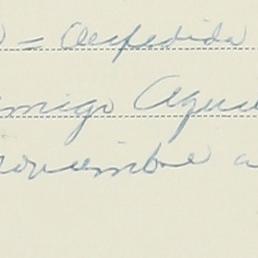 = Despedida
amigo Agu
noviembre a